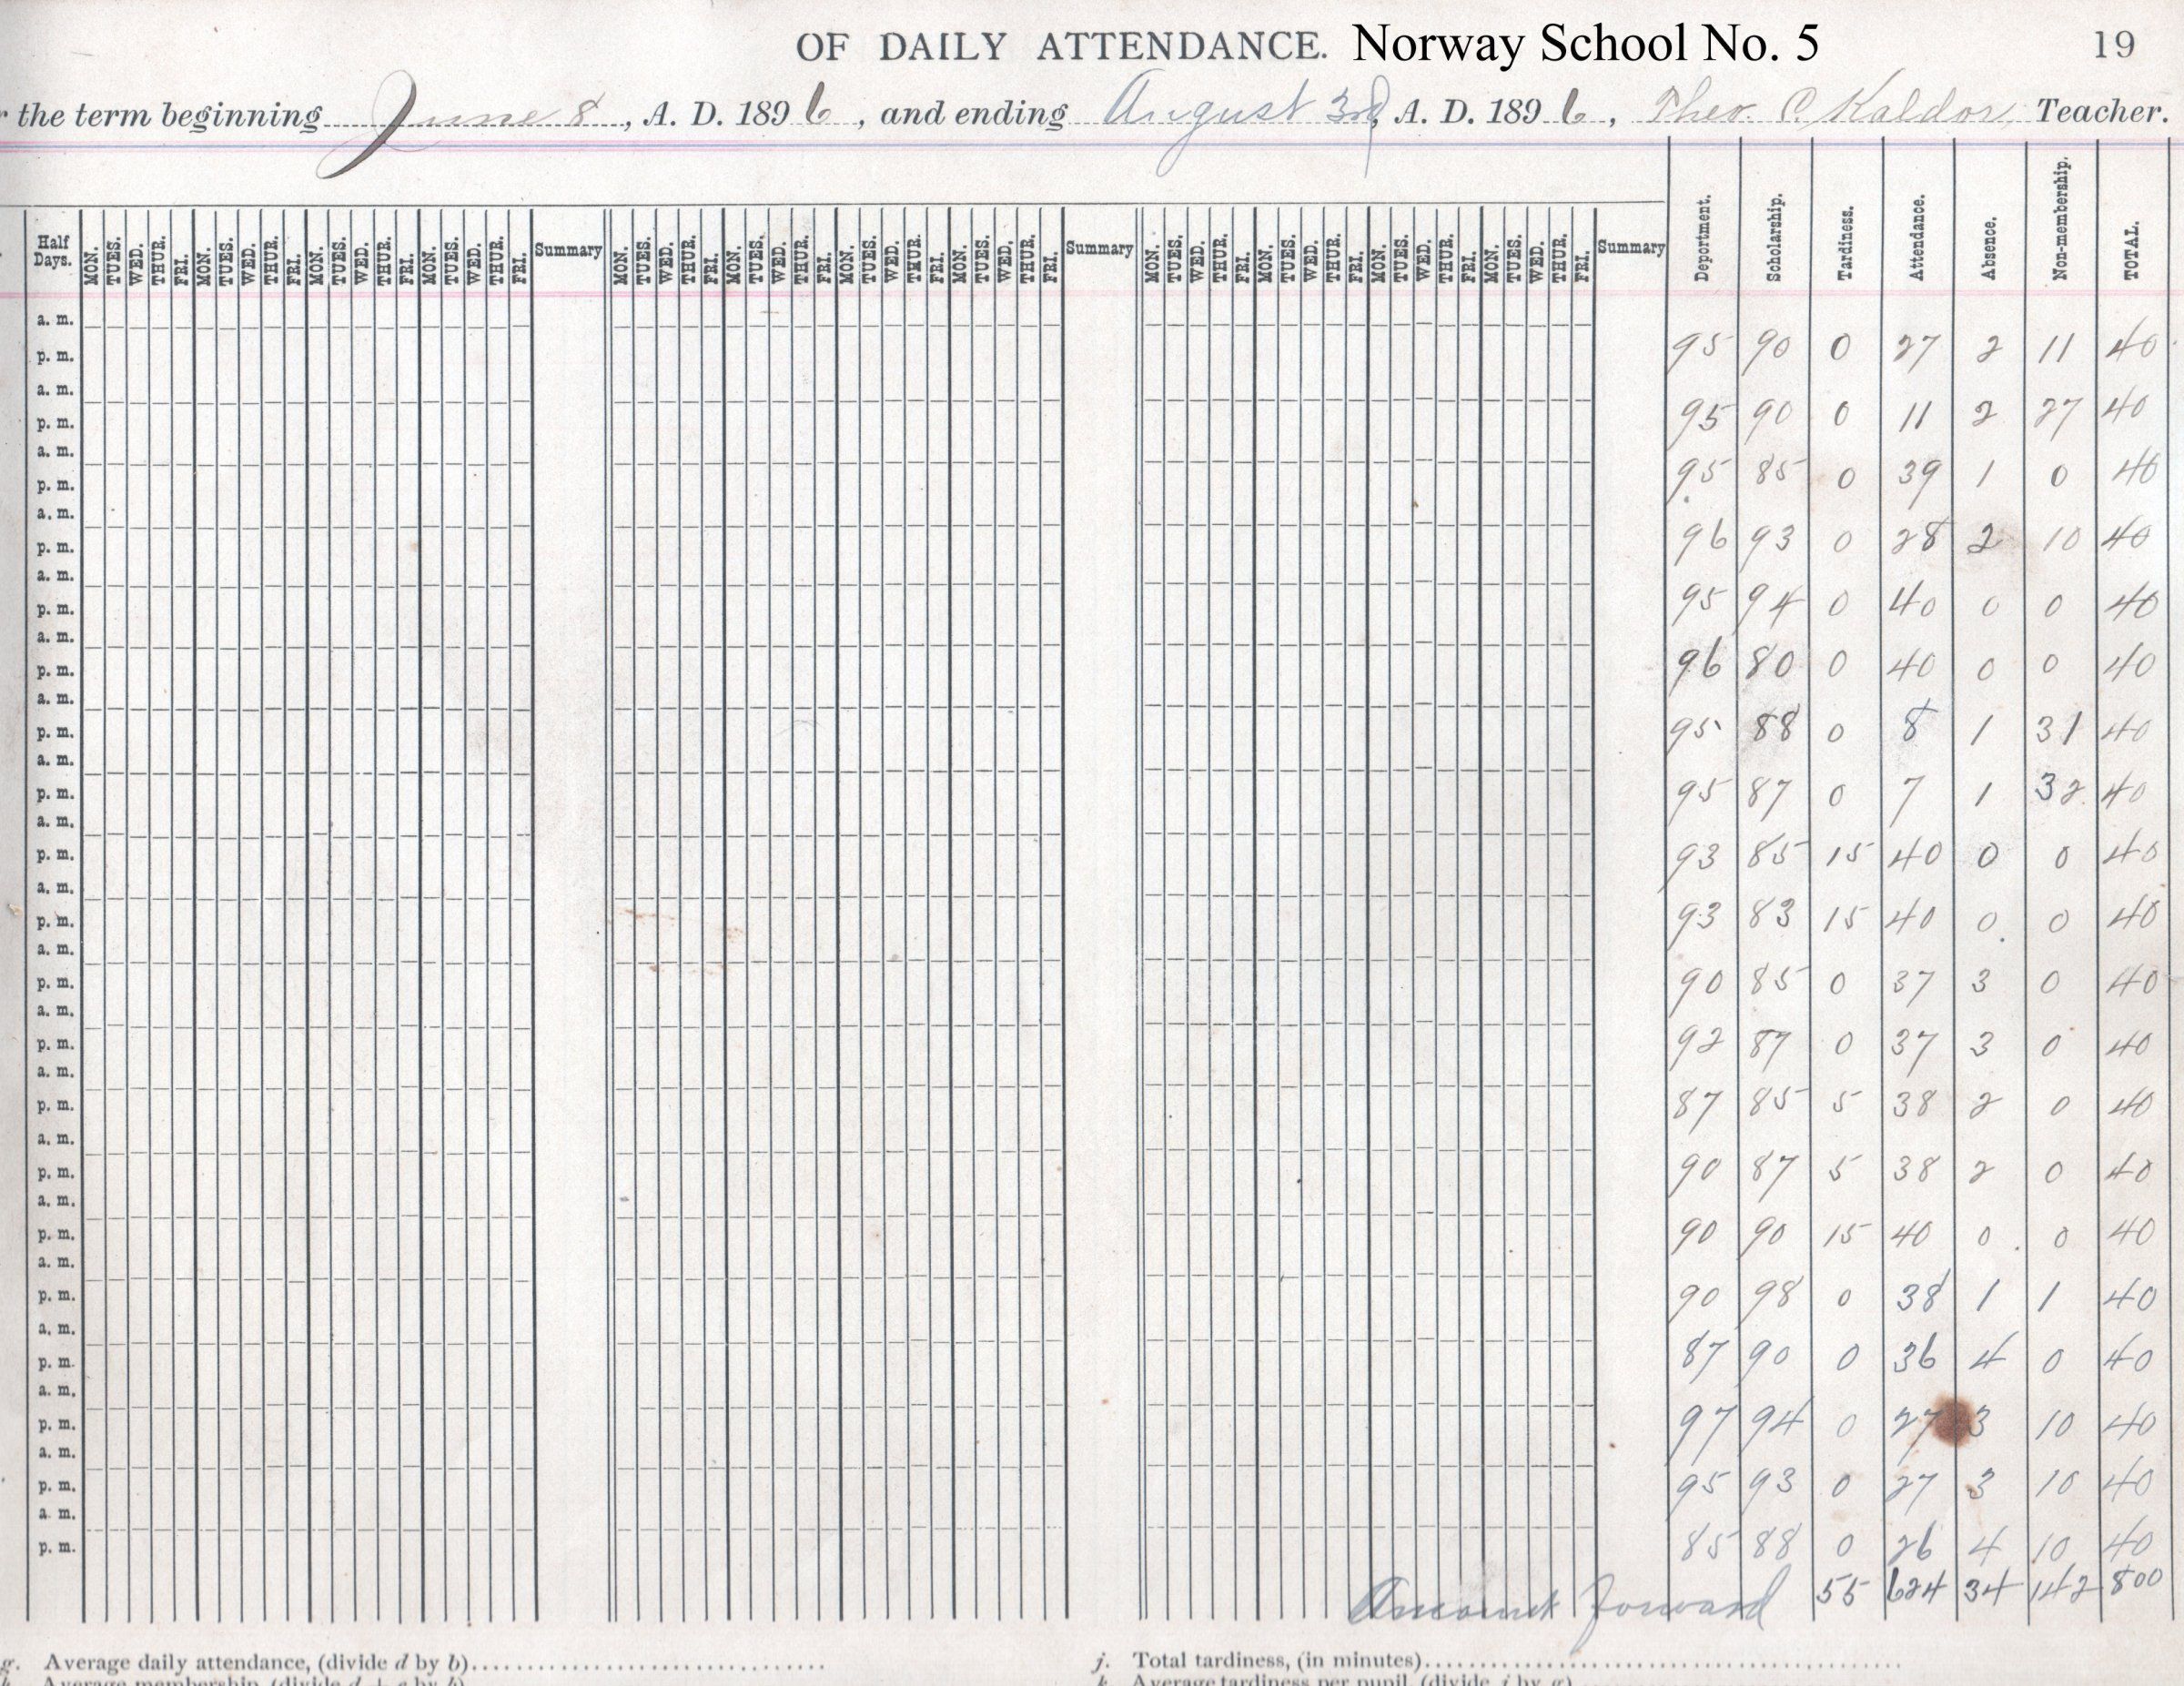 OF DAILY ATTENDANCE. Norway School No. 5 19
the term beginning June 8, A. D. 1896, and ending August 3rd, A. D. 1896, Theo. C. Kaldor, Teacher.
Half Days. MON. TUES. WED. THUR. FRI. MON. TUES. WED. THUR. FRI. MON. TUES. WED. THUR. FRI. MON. TUES. WED. THUR. FRI. Summary MON. TUES. WED. THUR. FRI. MON. TUES. WED. THUR. FRI. MON. TUES. WED. THUR. FRI. MON. TUES. WED. THUR. FRI. Summary MON. TUES. WED. THUR. FRI. MON. TUES. WED. THUR. FRI. MON. TUES. WED. THUR. FRI. MON. TUES. WED. THUR. FRI. Summary Deportment. Scholarship. Tardiness. Attendance. Absence. Non-membership. TOTAL.
a. m.
p. m. 95 90 0 27 2 11 40
a. m.
p. m. 95 90 0 11 2 27 40
a. m.
p. m. 95 85 0 39 1 0 40
a. m.
p. m. 96 93 0 28 2 10 40
a. m.
p. m. 95 94 0 40 0 0 40
a. m.
p. m. 96 80 0 40 0 0 40
a. m.
p. m. 95 88 0 8 1 31 40
a. m.
p. m. 95 87 0 7 1 32 40
a. m.
p. m. 93 85 15 40 0 0 40
a. m.
p. m. 93 83 15 40 0 0 40
a. m.
p. m. 90 85 0 37 3 0 40
a. m.
p. m. 92 87 0 37 3 0 40
a. m.
p. m. 87 85 5 38 2 0 40
a. m.
p. m. 90 87 5 38 2 0 40
a. m.
p. m. 90 90 15 40 0 0 40
a. m.
p. m. 90 98 0 38 1 1 40
a. m.
p. m. 87 90 0 36 4 0 40
a. m.
p. m. 97 94 0 27 3 10 40
a. m.
p. m. 95 93 0 27 3 10 40
a. m.
p. m. 85 88 0 26 4 10 40
Amount Forward 55 624 34 142 800
g. Average daily attendance, (divide d by b) j. Total tardiness, (in minutes)
Average membership, (divide d + e by b) k. Average tardiness per pupil, (divide j by g)